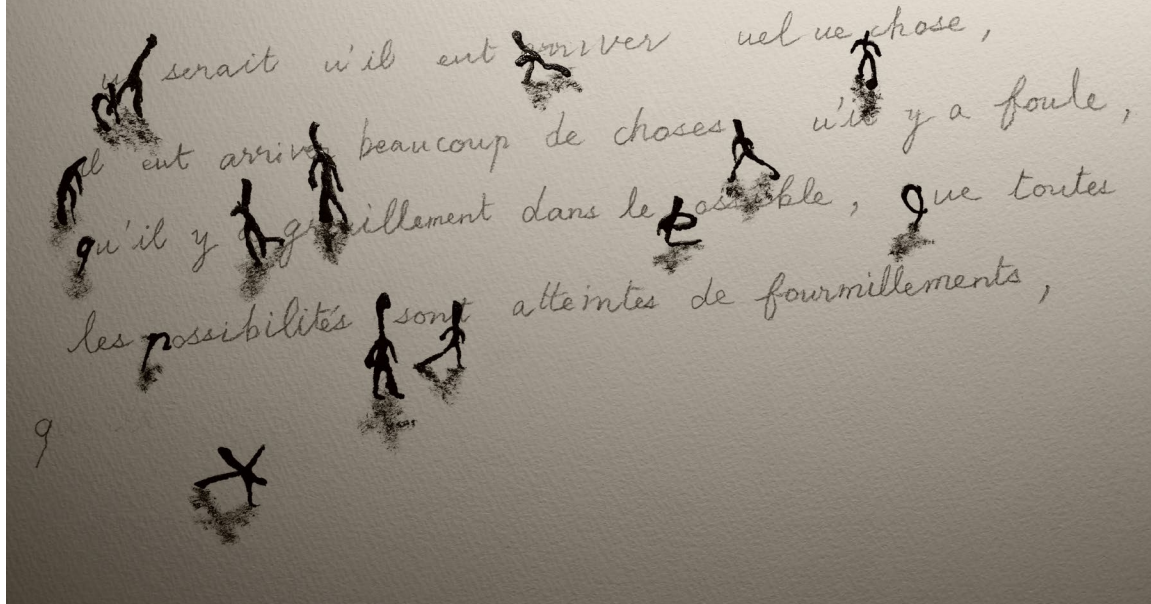 serait u'il eut arriver uel ue chose,
il eut arriver beaucoup de choses u'il y a foule,
qu'il y a grouillement dans le possible, que toutes
les possibilités sont atteintes de fourmillements,
q